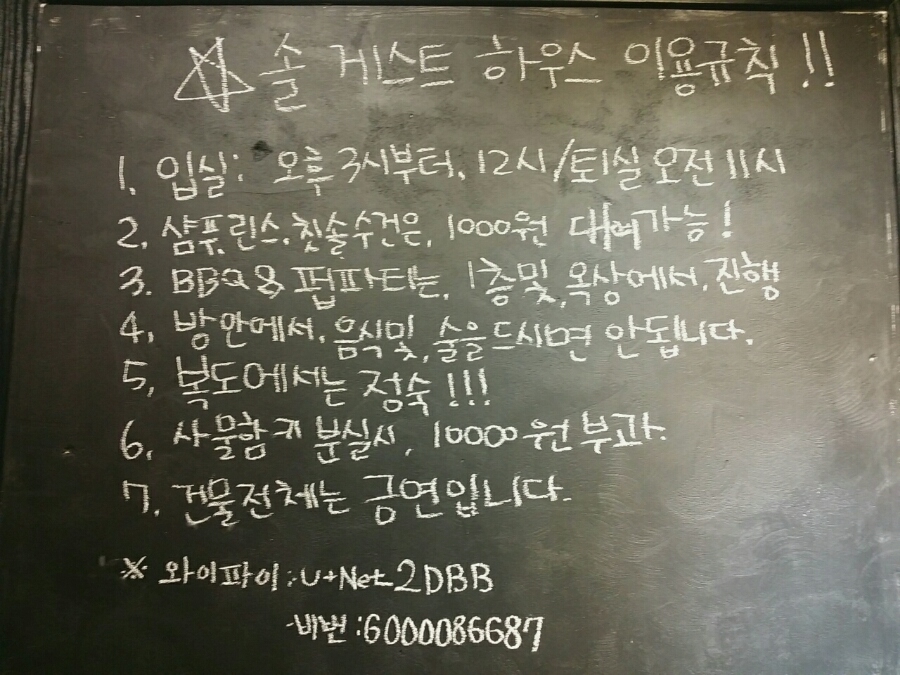 ☆솔 게스트 하우스 이용규칙!!
1. 입실: 오후3시부터. 12시/퇴실 오전 11시
2. 샴푸.린스.칫솔수건은, 1000원 대여가능!
3. BBQ & 펍파티는, 1층및,옥상에서, 진행
4, 방안에서, 음식및,술을드시면 안됩니다.
5, 복도에서는 정숙!!!
6, 사물함 키 분실시, 10000원 부과.
7, 건물전체는 금연입니다.
※ 와이파이:U+Net2DBB
-비번:6000086687